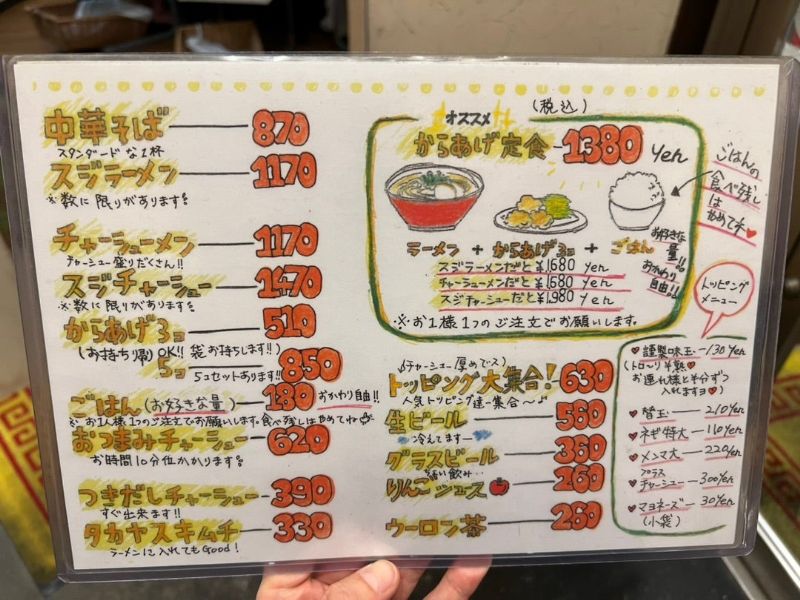 中華そば 870
スタンダードな1杯
スジラーメン 1170
※数に限りがあります
チャーシューメン 1170
チャーシュー盛りだくさん!!
スジチャーシュー 1470
※数に限りがあります
からあげ3コ 510
(お持ち帰りOK!! 袋お持ちします!!)
5コ 850
5コセットあります!!
ごはん(お好きな量) 180 おかわり自由!!
※お1人様1つのご注文でお願いします。食べ残しはやめてね
おつまみチャーシュー 620
お時間10分位かかります
つきだしチャーシュー 390
すぐ出来ます!!
タカヤスキムチ 330
ラーメンに入れてもGood!
オススメ (税込)
からあげ定食 1380 yen
ラーメン + からあげ3コ + ごはん
お好きな量!!
おかわり自由!!
スジラーメンだと¥1680 yen
チャーシューだと¥1680 yen
スジチャーシューだと¥1980 yen
※お1人様1つのご注文でお願いします。
ごはんの
食べ残し
は
やめてネ♥
(チャーシュー厚めデス)
トッピング大集合! 630
人気トッピング達、集合〜♪
生ビール 560
冷えてます
グラスビール 360
軽い飲み…
りんごジュース 260
ウーロン茶 260
トッピング
メニュー
♥謹製味玉-130yen
(トロ〜リ半熟♥
お連れ様と半分ずつ
入れますヨ)
♥替玉-210yen
♥ネギ特大-110yen
♥メンマ大-220yen
♥プラス
チャーシュー-300yen
♥マヨネーズ-30yen
(小袋)